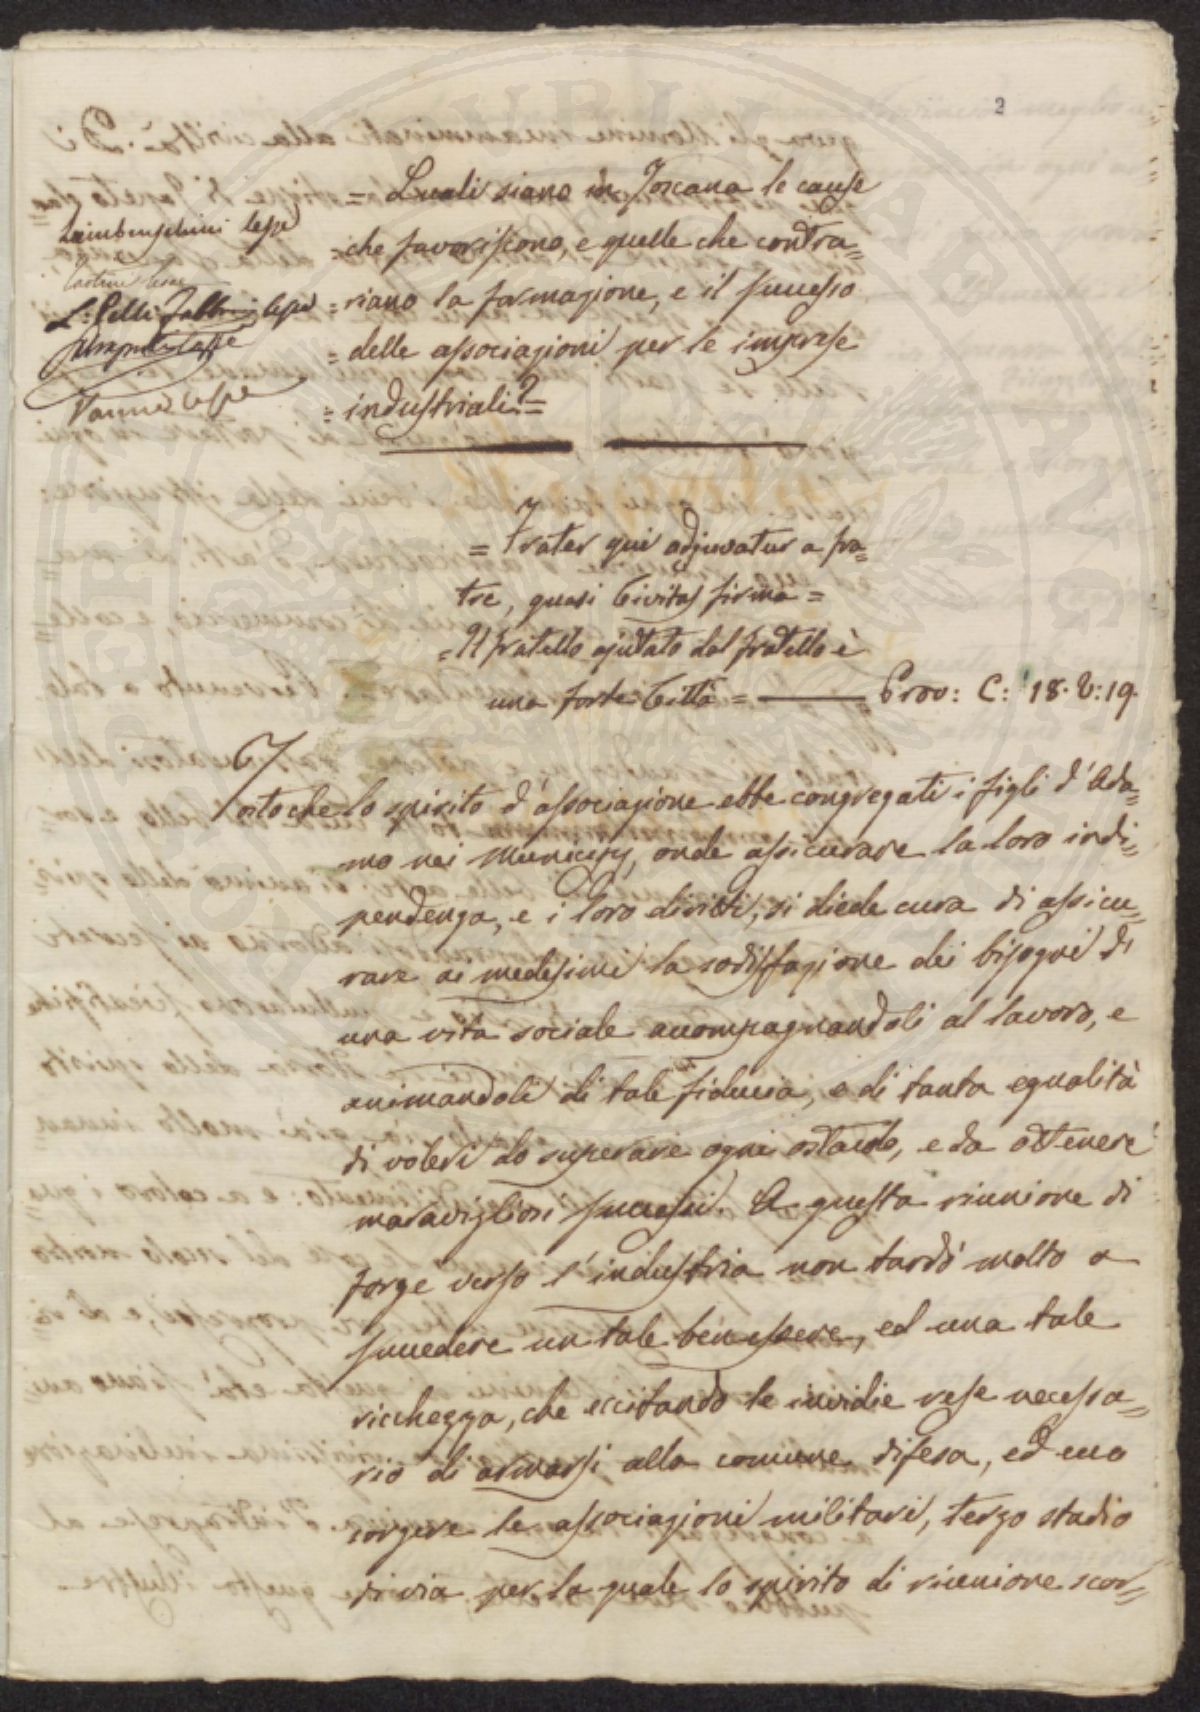 2
= Quali siano in Toscana le cause
= che favoriscono, e quelle che contra=
= riano la formazione, e il successo
= delle associazioni per le imprese
= industriali? =
Lambruschini lesse
L: Pelli Fabbroni lesse
Vanni lesse
= Frater qui adjuvatur a fra=
tre, quasi Civitas firma =
= Il fratello ajutato dal fratello è
una forte Città = Prov: C: 18. V: 19.
Tosto che lo spirito d'associazione ebbe congregati i figli d'Ada=
mo nei Municipj, onde assicurare la loro indi=
pendenza, e i loro diritti, si diede cura di assicu=
rare ai medesimi la sodisfazione dei bisogni di
una vita sociale accompagnandoli al lavoro, e
animandoli di tale fiducia, e di tanta egualità
di voleri da superare ogni ostacolo, e da ottenere
maravigliosi successi. A questa riunione di
forze verso l'industria non tardò molto a
succedere un tale benessere, ed una tale
ricchezza, che eccitando le invidie rese necessa=
rio di armarsi alla comune difesa, ed ecco
sorgere le associazioni militari, terzo stadio
di via per la quale lo spirito di riunione scor=